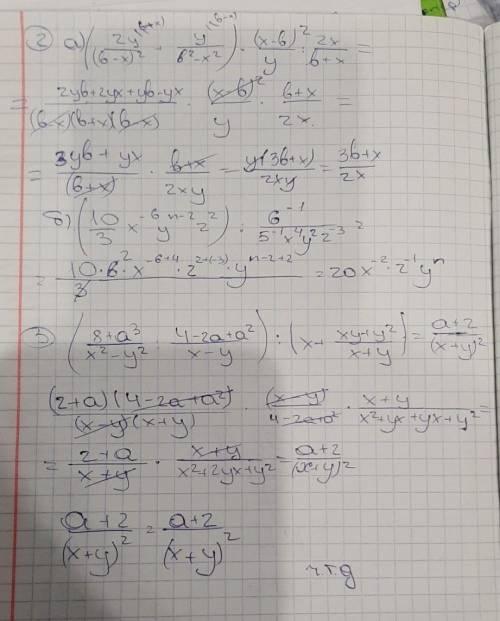 ② а) (2y^(в+x)/(в-x)² + y^(в-x)/(в²-x²)) · (x-в)²/y : 2x/(в+x) =
= (2yв+2yx+yв-yx)/((в-x)(в+x)(в-x)) · (x-в)²/y · (в+x)/2x =
= (3yв+yx)/(в+x) · (в+x)/2xy = y(3в+x)/2xy = (3в+x)/2x
б) (10/3 x⁻⁶ y^(n-2) z²) : 6⁻¹/(5⁻¹x⁴y²z⁻³) =
= (10·6·2 x^(-6+4) · z^(2+(-3)) · y^(n-2+2))/3 = 20x⁻² · z⁻¹ yⁿ
③ ((8+a³)/(x²-y²) : (4-2a+a²)/(x-y)) : (x+ (xy+y²)/(x+y)) = (a+2)/(x+y)²
(2+a)(4-2a+a²)/((x-y)(x+y)) · (x-y)/(4-2a+a²) · (x+y)/(x²+yx+yx+y²) =
= (2+a)/(x+y) · (x+y)/(x²+2yx+y²) = (a+2)/(x+y)²
(a+2)/(x+y)² = (a+2)/(x+y)²
ч.т.д